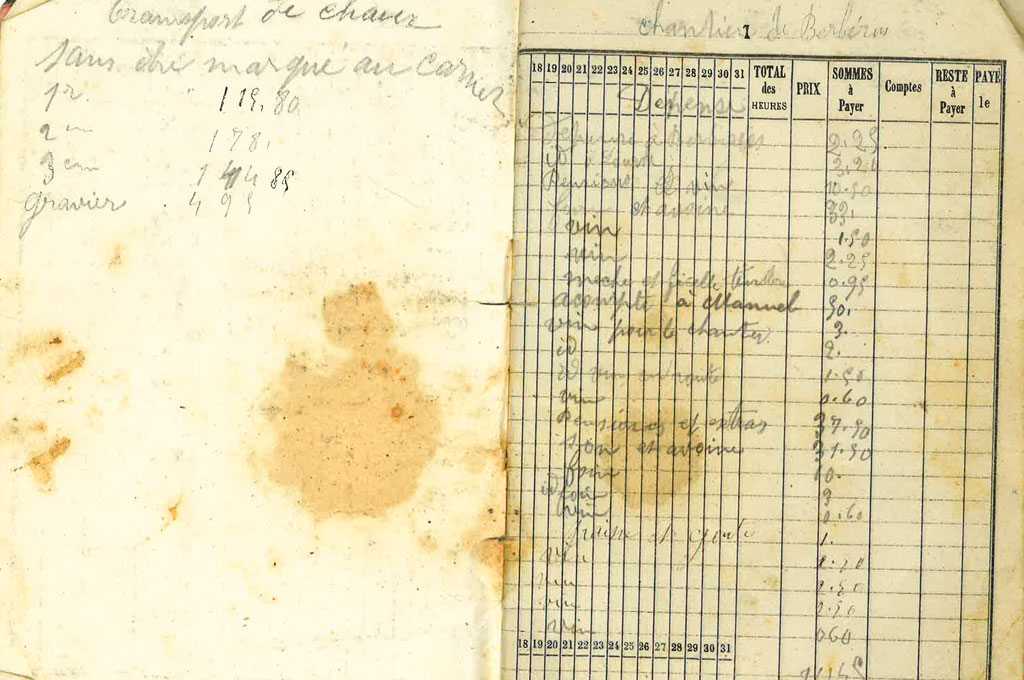 transport de chaux
sans être marqué au carnet
1r 119.80
2em 178.
3em 144 85
gravier . 495
chantier de Berbérus
1
18 19 20 21 22 23 24 25 26 27 28 29 30 31 TOTAL des HEURES PRIX SOMMES à Payer Comptes RESTE à Payer PAYÉ le
Depense
à 2.25
id à
Pensions et vin 10.50
et avoine 32.
vin 1.50
vin 2.25
meche et ficelle 0.95
acompte à Manuel 50.
vin pour le chantier 3.
id 2.
id vin en route 1.50
vin 0.60
Pensions et extras 37.50
son et avoine 31.50
foin 10.
id foin 3
vin 0.60
et 1.
vin
vin
vin 2.50
vin 060
18 19 20 21 22 23 24 25 26 27 28 29 30 31